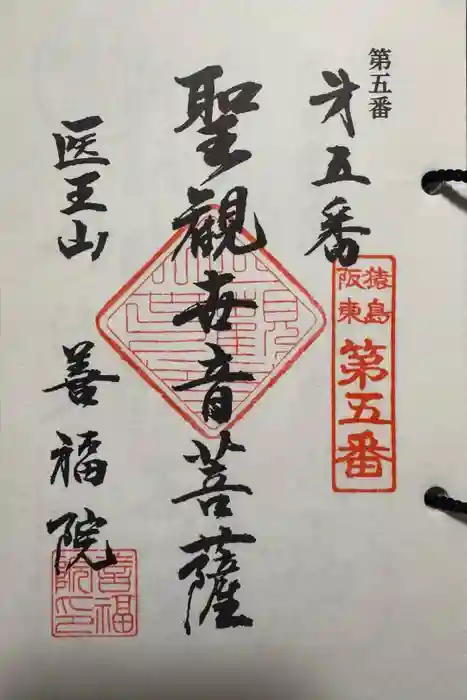 第五番
第五番
猿島
阪東
第五番
聖観世音菩薩
医王山 善福院
善福
院印